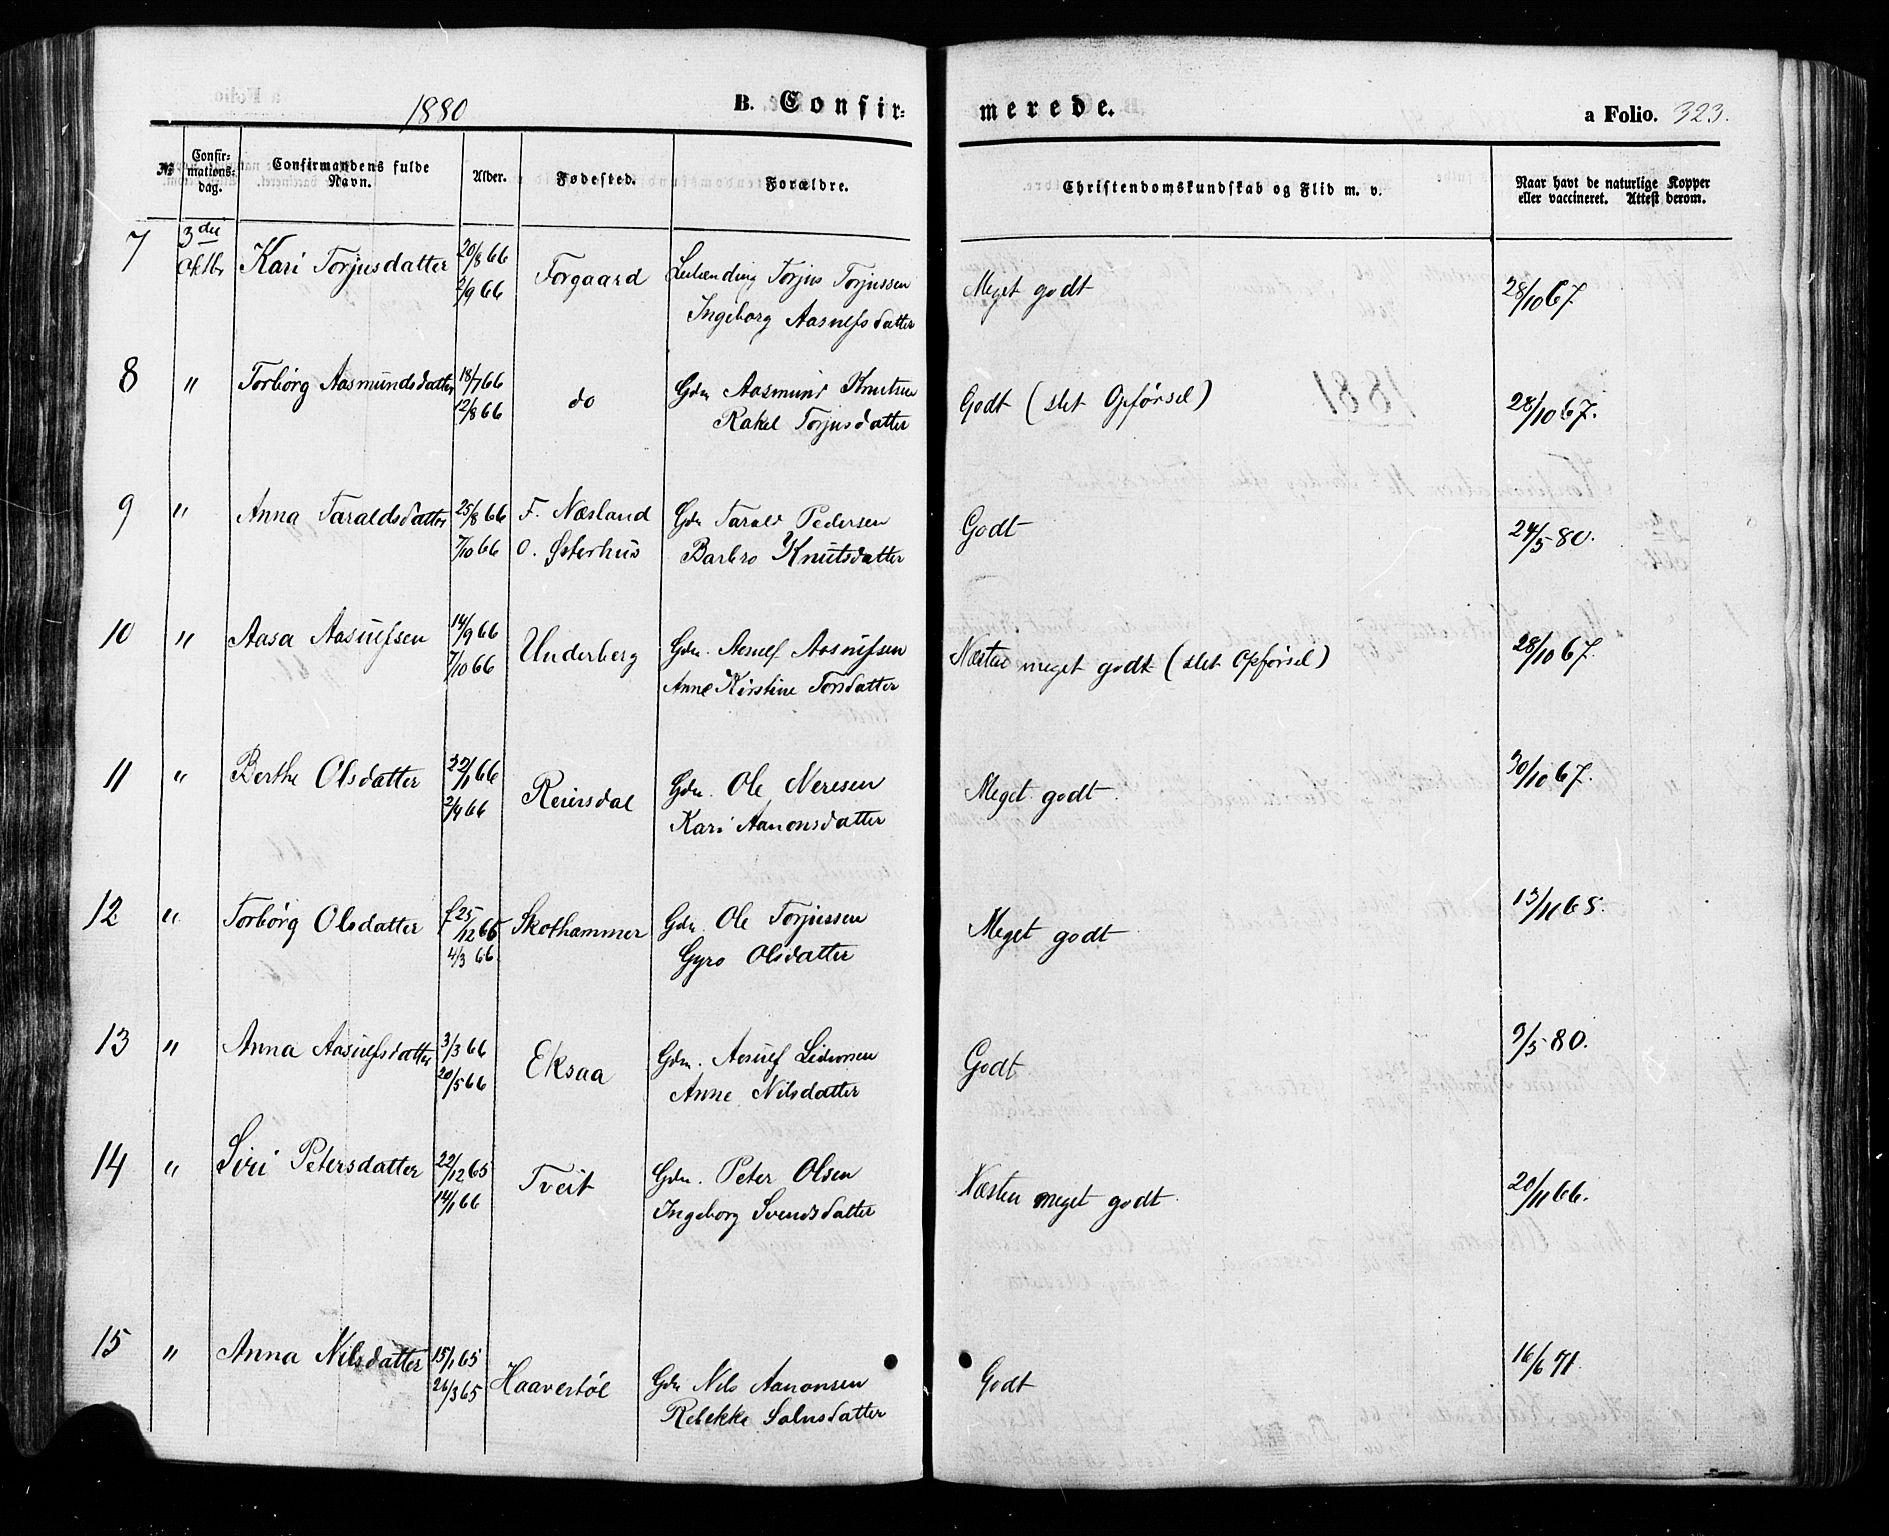 1880 B. Confirmerede. a Folio. 323.
№ Confirmationsdag. Confirmandens fulde Navn. Alder. Fødested. Forældre. Christendomskundskab og Flid m. v. Naar havt de naturlige Kopper eller vaccineret. Attest derom.
7 3die Oktbr Kari Torjusdatter 20/8 66 Torgaard Torjus Torjussen Meget godt 28/10 67.
2/9 66 Ingeborg Aasulfsdatter
8 " Torbórg Aasmundsdatter 18/7 66 do Gdm Aasmund Knutsen Godt (slet Opførsel) 28/10 67.
12/8 66 Rakel Torjusdatter
9 " Anna Taraldsdatter 25/8 66 F. Næsland Gdm Tarald Pedersen Godt 24/5 80.
7/10 66 O. Østerhus Barbro Knutsdatter
10 " Aasa Aasulfsen 14/9 66 Underberg Gdm. Aasulf Aasulfsen Næsten meget godt (slet Opførsel) 28/10 67.
7/10 66 Anne Kirstine Torsdatter
11 " Berthe Olsdatter 22/1 66 Reiersdal Gdm. Ole Neresen Meget godt. 30/10 67.
2/4 66 Kari Aanonsdatter
12 " Torbórg Olsdatter f 25/12 65 Skothammer Gdm. Ole Torjussen Meget godt 13/11 68.
4/3 66 Gyro Olsdatter
13 " Anna Aasulfsdatter 3/3 66 Eksaa Gdm. Aasulf Godt 9/5 80.
20/5 66 Anne Nilsdatter
14 " Siri Petersdatter 22/12 65 Tveit Gdm. Peter Olsen Næsten meget godt 20/11 66.
14/1 66 Ingeborg Svendsdatter
15 " Anna Nilsdatter 15/1 65 Haaverstól Gdm Nils Aanonsen Godt 16/6 71.
26/3 65 Rebekke